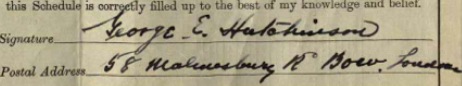 this Schedule is correctly filled up to the best of my knowledge and belief.
Signature George E. Hutchinson
Postal Address 58 Malmesbury Rd Bow. London